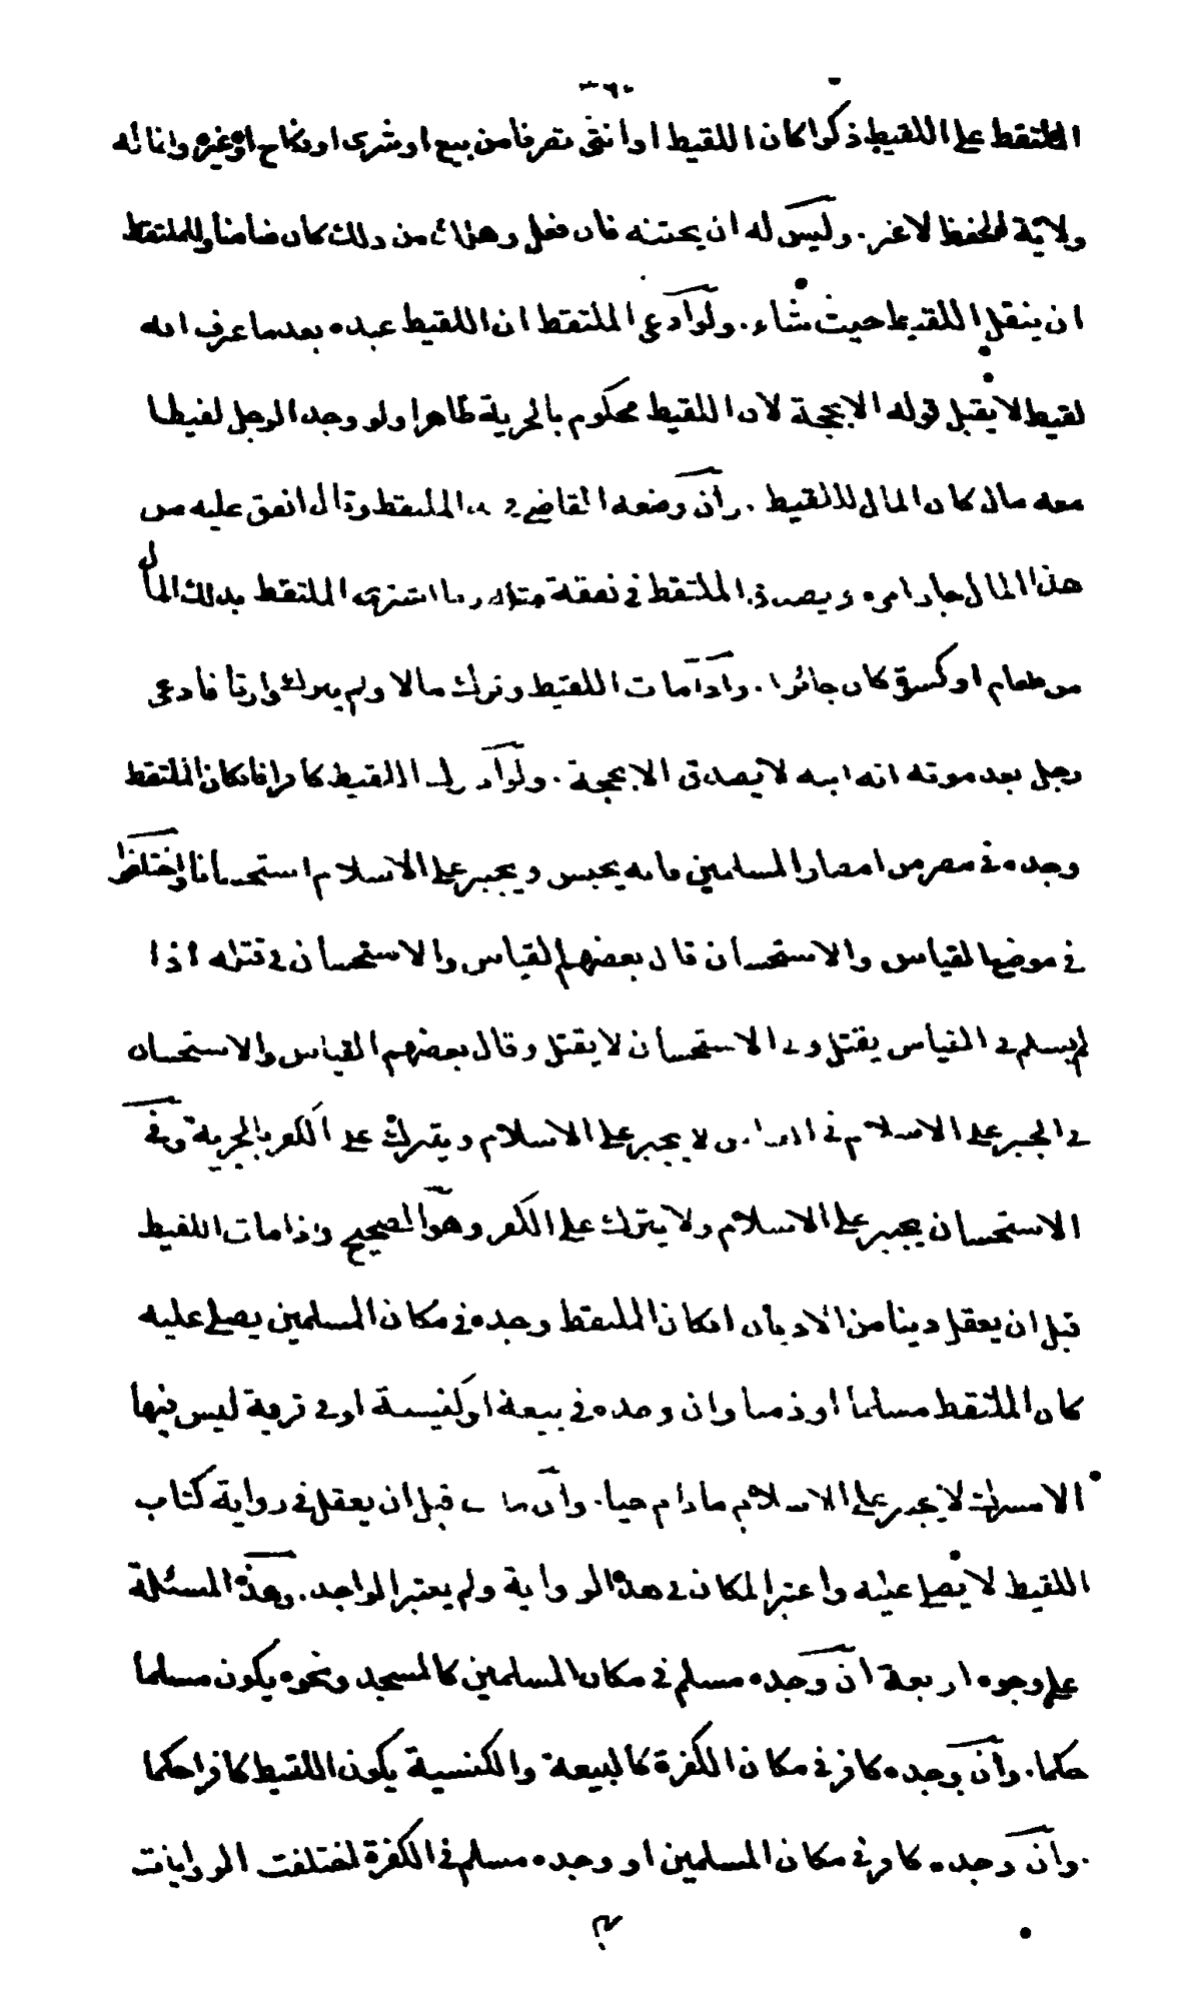 -٦٠-
الملتقط على اللقيط ذكرا كان اللقيط او انثى تصرفا من بيع او شرى او نكاح او غيره وانما له
ولاية الحفظ لا غير. وليس له ان يختنه فان فعل وهلك من ذلك كان ضامنا وللملتقط
ان ينقل اللقيط حيث شاء. ولو ادعى الملتقط ان اللقيط عبده بعدما عرف انه
لقيط لا يقبل قوله الا بحجة لان اللقيط محكوم بالحرية ظاهرا ولو وجد الرجل لقيطا
معه مال كان المال للقيط. وان وضعه القاضي في يد الملتقط وقال انفق عليه من
هذا المال جاز امره ويصدق الملتقط في نفقة مثله وما اشترى الملتقط بذلك المال
من طعام او كسوة كان جائزا. واذا مات اللقيط وترك مالا ولم يترك وارثا فادعى
رجل بعد موته انه ابنه لا يصدق الا بحجة. ولو ادرك اللقيط كافرا فان كان الملتقط
وجده في مصر من امصار المسلمين فانه يحبس ويجبر على الاسلام استحسانا واختلفوا
في موضع القياس والاستحسان قال بعضهم القياس والاستحسان في قتله اذا
لم يسلم في القياس يقتل وفي الاستحسان لا يقتل وقال بعضهم القياس والاستحسان
في الجبر على الاسلام في القياس لا يجبر على الاسلام ويترك على الكفر بالجزية وفي
الاستحسان يجبر على الاسلام ولا يترك على الكفر وهو الصحيح واذا مات اللقيط
قبل ان يعقل دينا من الاديان ان كان الملتقط وجده في مكان المسلمين يصلى عليه
كان الملتقط مسلما او ذميا وان وجده في بيعة او كنيسة او في قرية ليس فيها
الا مشرك لا يجبر على الاسلام ما دام حيا. وان مات قبل ان يعقل في رواية كتاب
اللقيط لا يصلى عليه واعتبر المكان في هذه الرواية ولم يعتبر الواجد. وهذه المسئلة
على وجوه اربعة ان وجده مسلم في مكان المسلمين كالمسجد ونحوه يكون مسلما
حكما. وان وجده كافر في مكان الكفرة كالبيعة والكنسية يكون اللقيط كافرا حكما
.وان وجده كافر في مكان المسلمين او وجده مسلم في الكفرة اختلفت الروايات